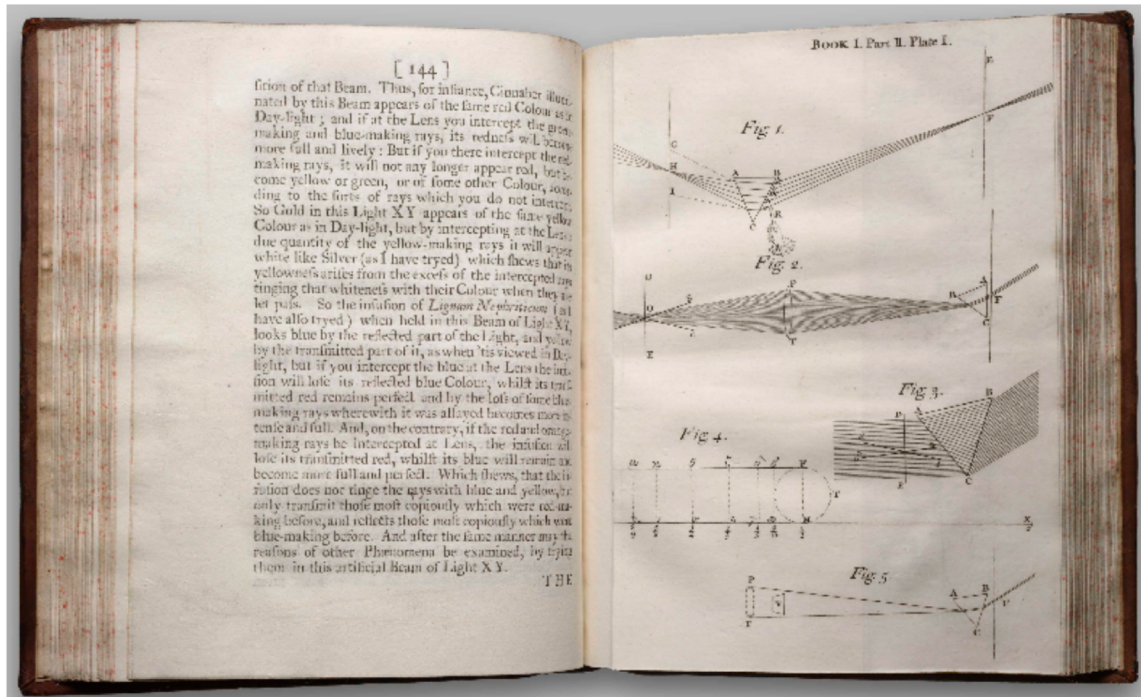 [ 144 ]
ſition of that Beam. Thus, for inſtance, Cinnaber illumi-
nated by this Beam appears of the ſame red Colour as in
Day-light; and if at the Lens you intercept the green-
making and blue-making rays, its redneſs will become
more full and lively: But if you there intercept the red-
making rays, it will not any longer appear red, but be-
come yellow or green, or of ſome other Colour, accor-
ding to the ſorts of rays which you do not intercept.
So Gold in this Light XY appears of the ſame yellow
Colour as in Day-light, but by intercepting at the Lens
due quantity of the yellow-making rays it will appear
white like Silver (as I have tryed) which ſhews that its
yellowneſs ariſes from the exceſs of the intercepted rays
tinging that whiteneſs with their Colour when they are
let paſs. So the infuſion of Lignum Nephriticum (as I
have alſo tryed) when held in this Beam of Light XY,
looks blue by the reflected part of the Light, and yellow
by the tranſmitted part of it, as when 'tis viewed in Day-
light, but if you intercept the blue at the Lens the infu-
ſion will loſe its reflected blue Colour, whilſt its tranſ-
mitted red remains perfect and by the loſs of ſome blue-
making rays wherewith it was allayed becomes more in-
tenſe and full. And, on the contrary, if the red and orange-
making rays be intercepted at Lens, the infuſion will
loſe its tranſmitted red, whilſt its blue will remain and
become more full and perfect. Which ſhews, that the in-
fuſion does not tinge the rays with blue and yellow, but
only tranſmit thoſe moſt copiouſly which were red-ma-
king before, and reflects thoſe moſt copiouſly which were
blue-making before. And after the ſame manner may the
reaſons of other Phænomena be examined, by trying
them in this artificial Beam of Light XY.
THE
BOOK I. Part II. Plate I.
E
Fig 1.
F
G
H
A B
I
C
R
Fig 2.
O
P
A
B
F
C
E
T
Fig 3.
B
A
P
E
C
Fig 4.
T
X
Fig 5
P
A B
F
C
T